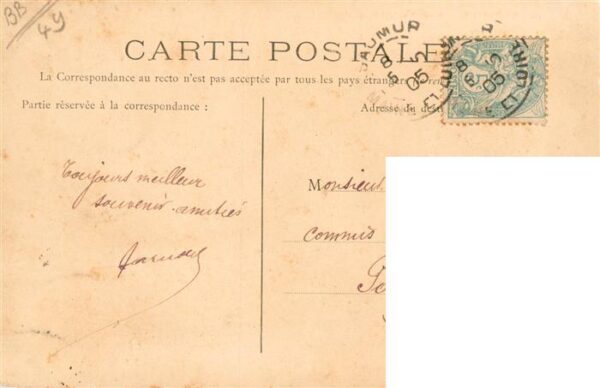 BB
49
CARTE POSTALE
SAUMUR
8
5 -2
05
8
5 -2
05
La Correspondance au recto n'est pas acceptée par tous les pays étrangers
Partie réservée à la correspondance :
Adresse du dest
Toujours meilleur
souvenir amitiés
Monsieur
commis